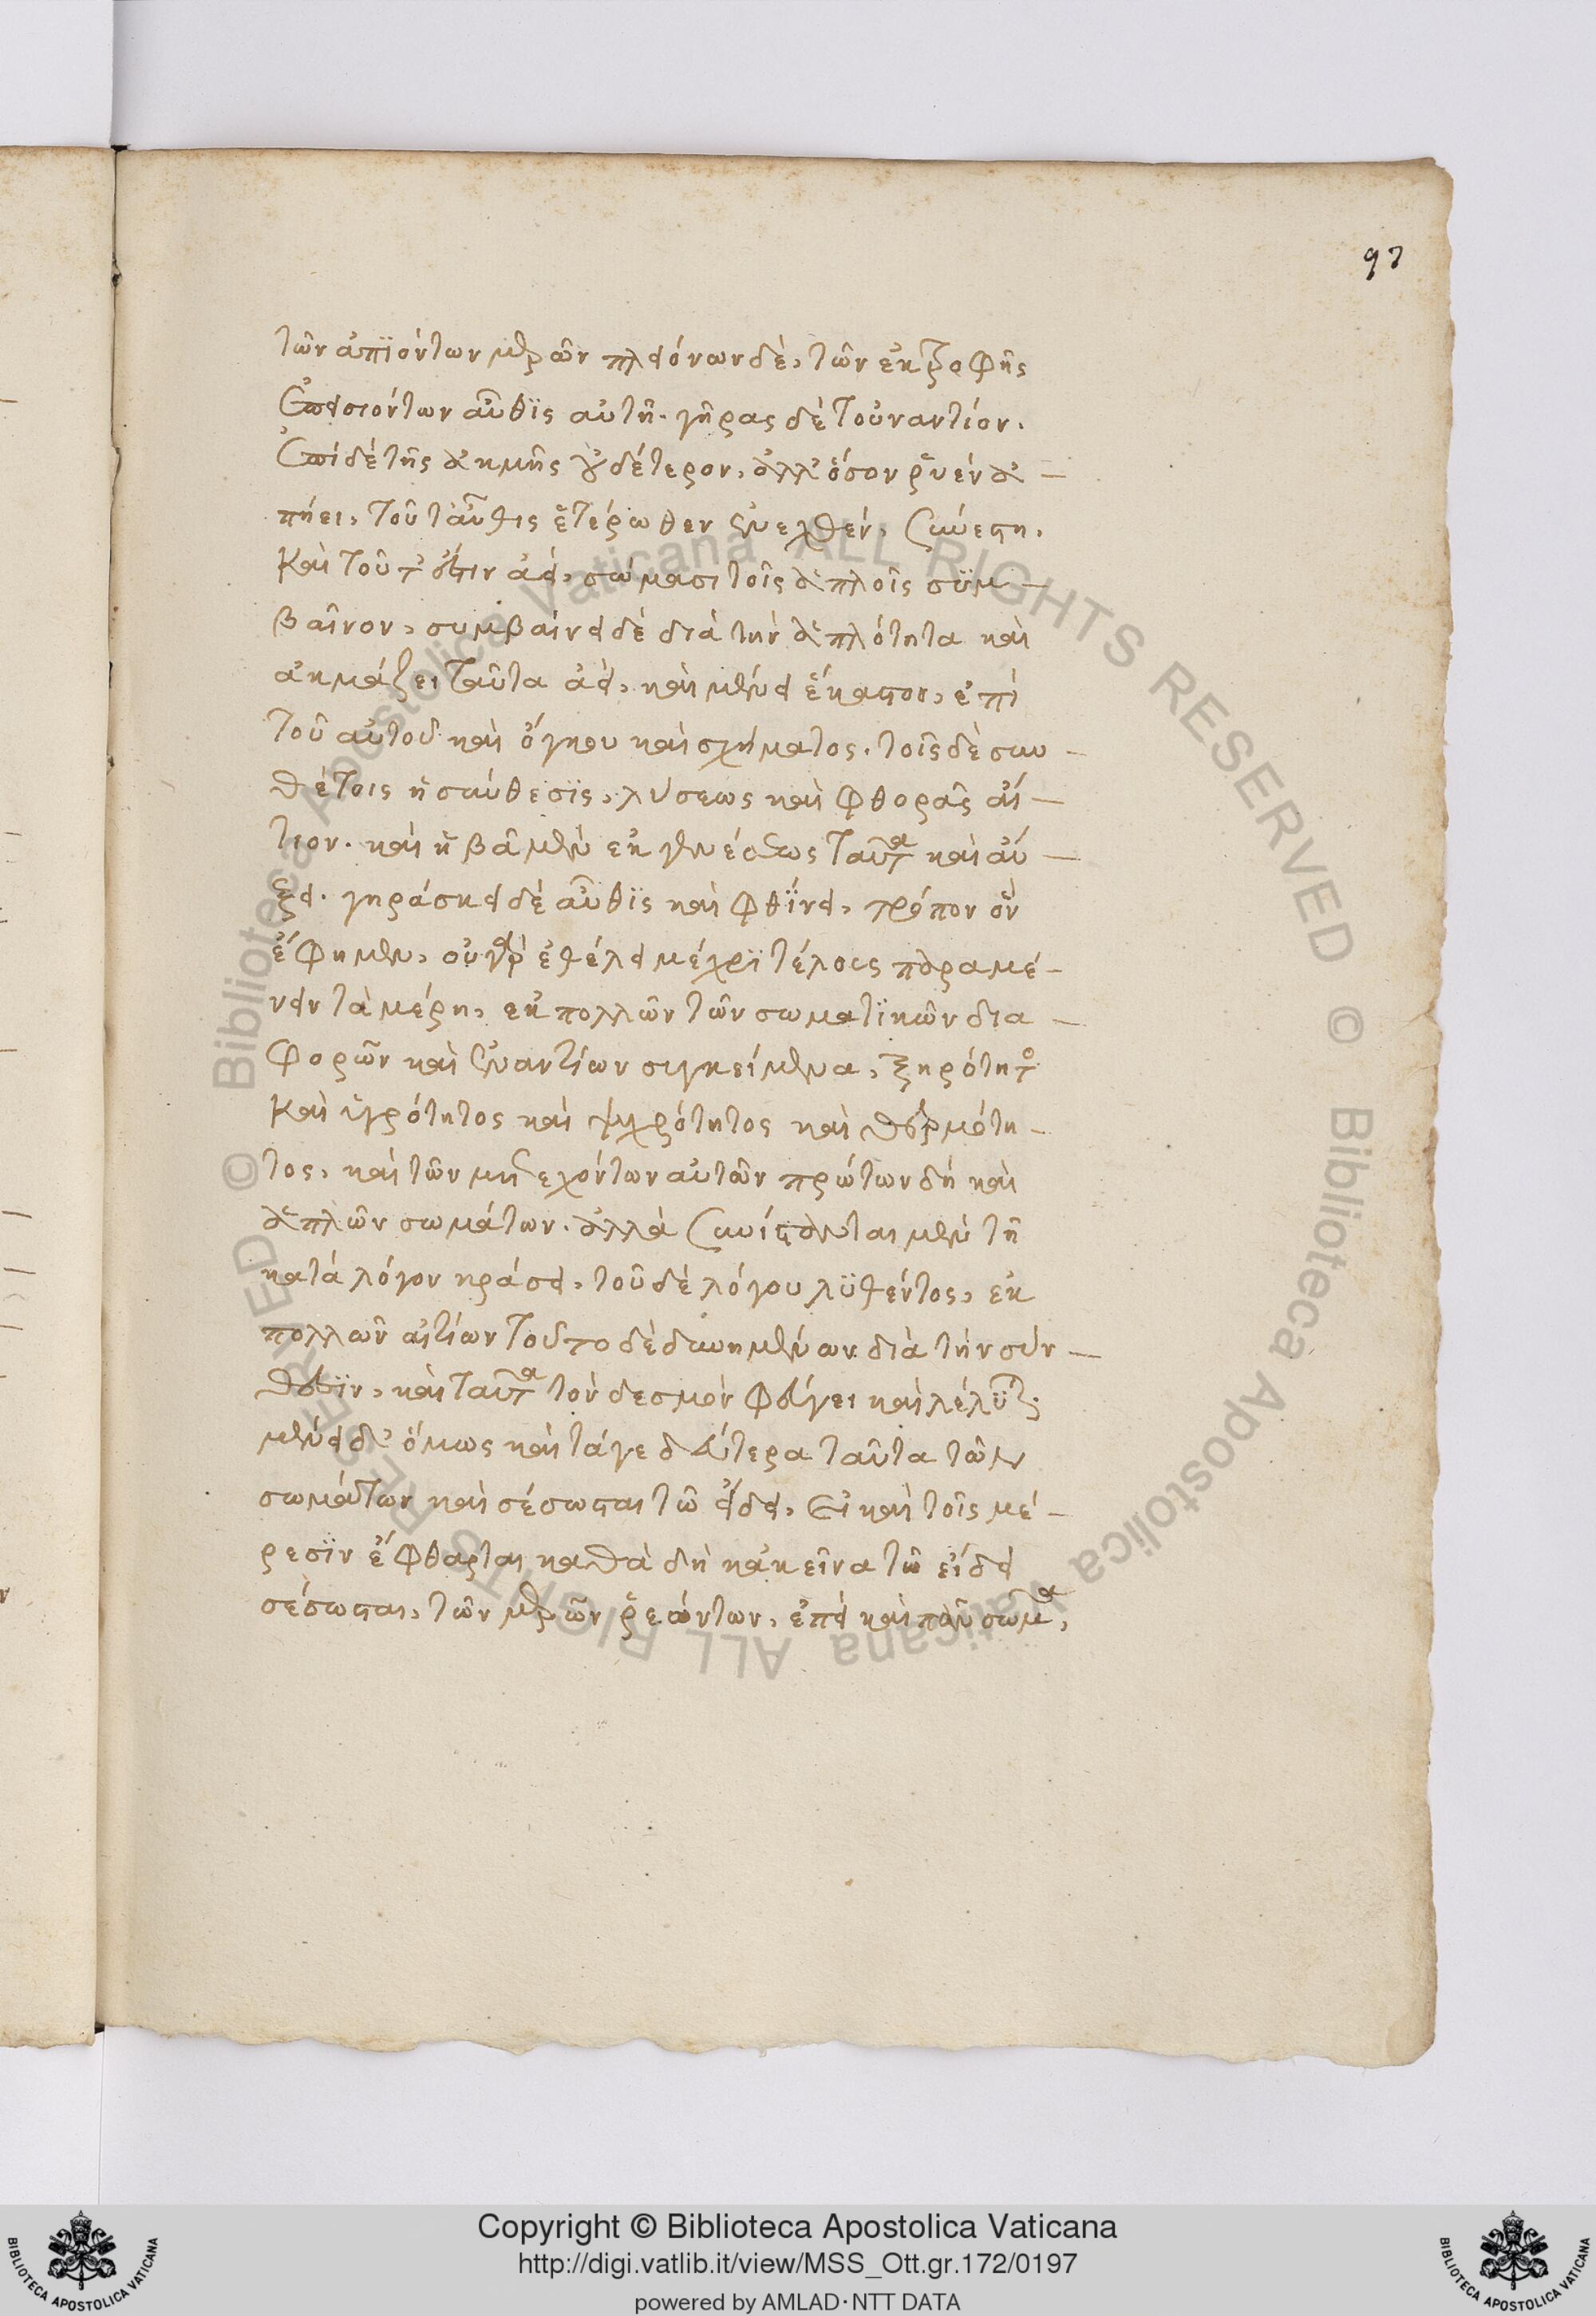 97
τῶν ἀπϊόντων μερῶν πλειόνων δὲ, τῶν ἐκ τροφῆς
ἐπεισιόντων αὖθϊς αὐτῆ. γῆρας δὲ τοὐναντίον.
ἐπὶ δὲ τῆς ἀκμῆς οὐδέτερον, ἀλλ' ὅσον ῥυὲν ἀ –
πήει, τοῦτ αὖθις ἑτέρωθεν ἐνεχθὲν, συνέστη.
καὶ τοῦτ' ἔστιν ἀεὶ, σώμασι τοῖς ἁπλοῖς συμ –
βαῖνον, συμβαίνει δὲ διὰ τὴν ἁπλότητα καὶ
ἀκμάζει ταῦτα ἀεὶ, καὶ μένει ἕκαστον, ἐπὶ
τοῦ αὐτοῦ καὶ ὄγκου καὶ σχήματος. τοῖς δὲ συν –
θέτοις ἡ σύνθεσϊς, λύσεως καὶ φθορᾶς αἴ –
τιον. καὶ ἡβᾶ μὲν ἐκ γενέσεως ταῦτα καὶ αὔ –
ξει. γηράσκει δὲ αὖθϊς καὶ φθΐνει, τρόπον ὃν
ἔφημεν, οὐ γὰρ ἐθέλει μέχρϊ τέλους παραμέ –
νειν τὰ μέρη, ἐκ πολλῶν τῶν σωματϊκῶν δια –
φορῶν καὶ ἐναντίων συγκείμενα, ξηρότητος
καὶ ὑγρότητος καὶ ψυχρότητος καὶ θερμότη –
τος, καὶ τῶν μετεχόντων αὐτῶν πρώτων δὴ καὶ
ἁπλῶν σωμάτων. ἀλλὰ συνίστανται μὲν τῆ
κατὰ λόγον κράσει, τοῦ δὲ λόγου λϋθέντος, ἐκ
πολλῶν αἰτίων τοῦτο δὲ δυνημένων διὰ τὴν σύν –
θεσϊν, καὶ ταῦτα τὸν δεσμὸν φεύγει καὶ λέλϋται
μένει δ' ὅμως καὶ τά γε δεύτερα ταῦτα τῶν
σωμάτων καὶ σέσωσται τῶ εἴδει, εἰ καὶ τοῖς μέ –
ρεσϊν ἔφθαρται καθὰ δὴ κἀκεῖνα τῶ εἴδει
σέσωσται, τῶν μερῶν ῥεόντων, ἐπεὶ καὶ πᾶν σῶμα,
Copyright © Biblioteca Apostolica Vaticana
http://digi.vatlib.it/view/MSS_Ott.gr.172/0197
powered by AMLAD·NTT DATA
BIBLIOTECA APOSTOLICA VATICANA
BIBLIOTECA APOSTOLICA VATICANA
© Biblioteca Apostolica Vaticana ALL RIGHTS RESERVED
© Biblioteca Apostolica Vaticana ALL RIGHTS RESERVED